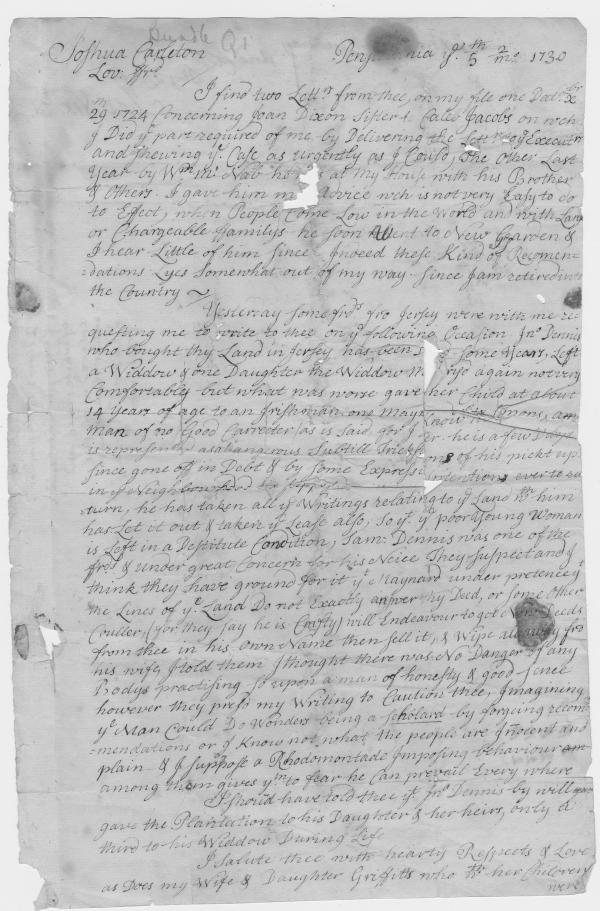 Bundle Q1
Joshua Carleton Pensilvania ye 5th 2 mo 1730
Lov: ffrd
I find two Lettrs from thee, on my file one Dat: Xbr
29th 1724 Concerning Joan Dixon Sister to Caleb Jacobs on wch
I Did ye part required of me by Delivering the Lettr to ye Executrs
and shewing ye Case as urgently as I Could, the Other Last
Year by Wm mc Nab he was at my House with his Brother
& Others I gave him my Advice wch is not very Easy to do
to Effect, when People Come Low in the World and with Large
or Chargeable ffamilys he soon Went to New Garden &
I hear Little of him since Indeed these Kind of Recomen-
=dations Lyes Somewhat out of my way Since I am retired into
the Country ~
Yesterday some frds fro Jersey were with me re-
questing me to write to thee on ye following Occasion Jno Dennis
who bought thy Land in Jersey has been some Years, Left
a Widdow & one Daughter the Widdow again not very
Comfortably but what was worse gave her Child at about
14 Years of age to an Irishman one
man of no Good Carrecter (as is said for I he is a few Days
is represented as a dangerous Subtill of his pick up
since gone off in Debt & by some Expressi intentions ever to re
in ye Neighbourhood
turn, he has taken all ye Writings relating to ye Land wth him
has Let it out & taken ye Lease also, So yt ye poor Young Woman
is Left in a Destitute Condition, Sam: Dennis was one of the
frds & under great Concern for his Neice They Suspect and
think they have ground for it yt Maynard under pretence yt
the Lines of ye Land Do not Exactly answer thy Deed, or some Other
Couller (for they say he is Crafty) will Endeavour to get New Deeds
from thee in his Own Name then sell it, & Wipe all away fro
his wife, I told them I thought there was No Danger of any
Bodys practising so upon a man of honesty & good sence
however they press my Writing to Caution thee, Imagining
ye Man Could Do Wonders being a scholard by forgeing recom
=mendations or I Know not what the people are Inocent and
plain & I suppose a Rhodomontade Imposing behaviour
among them gives ym to fear he can prevail Every where
I should have told thee yt Jno Dennis by will
gave the Plantation to his Daughter & her heirs, only a
third to his Widdow During Life
I Salute thee with hearty Respects & Love
as Does my Wife & Daughter Griffitts who wth her Children
were